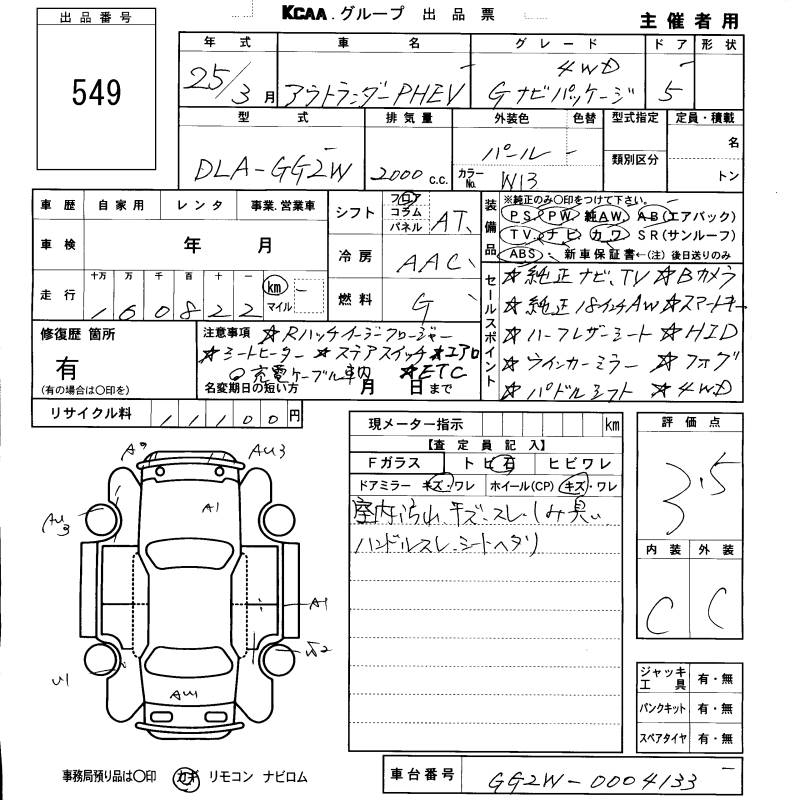 出品番号
549
KCAA.グループ 出品票
主催者用
年式 車名 グレード ドア 形状
25/3月 アウトランダーPHEV 4WD Gナビパッケージ 5
型式 排気量 外装色 色替 型式指定 定員・積載
DLA-GG2W 2000 c.c. パール カラーNo. W13 類別区分 名 トン
車歴 自家用 レンタ 事業.営業車
車検 年 月
走行 十万 万 千 百 十 一 km マイル
160822
シフト フロア コラム パネル AT
冷房 AAC
燃料 G
装備品
※純正のみ○印をつけて下さい。
PS. PW 純AW. AB(エアバック)
TV. ナビ カワ SR(サンルーフ)
ABS. 新車保証書←(注)後日送りのみ
セールスポイント
★純正ナビ、TV ★Bカメラ
★純正18インチAW ★スマートキー
★ハーフレザーシート ★HID
★ウインカーミラー ★フォグ
★パドルシフト ★4WD
修復歴 箇所
有
(有の場合は○印を)
注意事項 ★Rハッチイージークロージャー
★シートヒーター ★ステアスイッチ ★エアロ
○充電ケーブル車内 ★ETC
名変期日の短い方 月 日まで
リサイクル料 11100円
現メーター指示 km
【査定員記入】
Fガラス トビ石 ヒビワレ
ドアミラー キズ・ワレ ホイール(CP) キズ・ワレ
室内汚れ、キズ、スレ、しみ臭い
ハンドルスレ、シートヘタリ
評価点
3.5
内装 外装
C C
ジャッキ工具 有・無
パンクキット 有・無
スペアタイヤ 有・無
A9 AU3
A1
AU3
A1
U1
AU1
事務局預り品は○印 カギ リモコン ナビロム
車台番号 GG2W-0004133